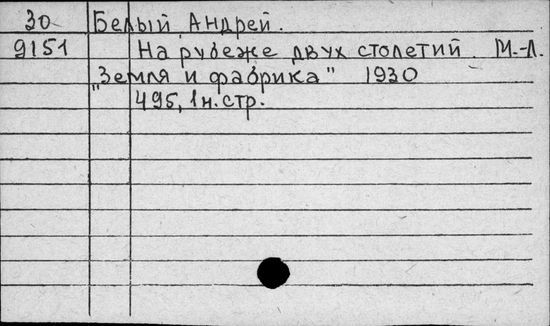 30 Белый, Андрей.
9151 На рубеже двух столетий. М.-Л.
"Земля и фабрика" 1930
495, 1 н. стр.